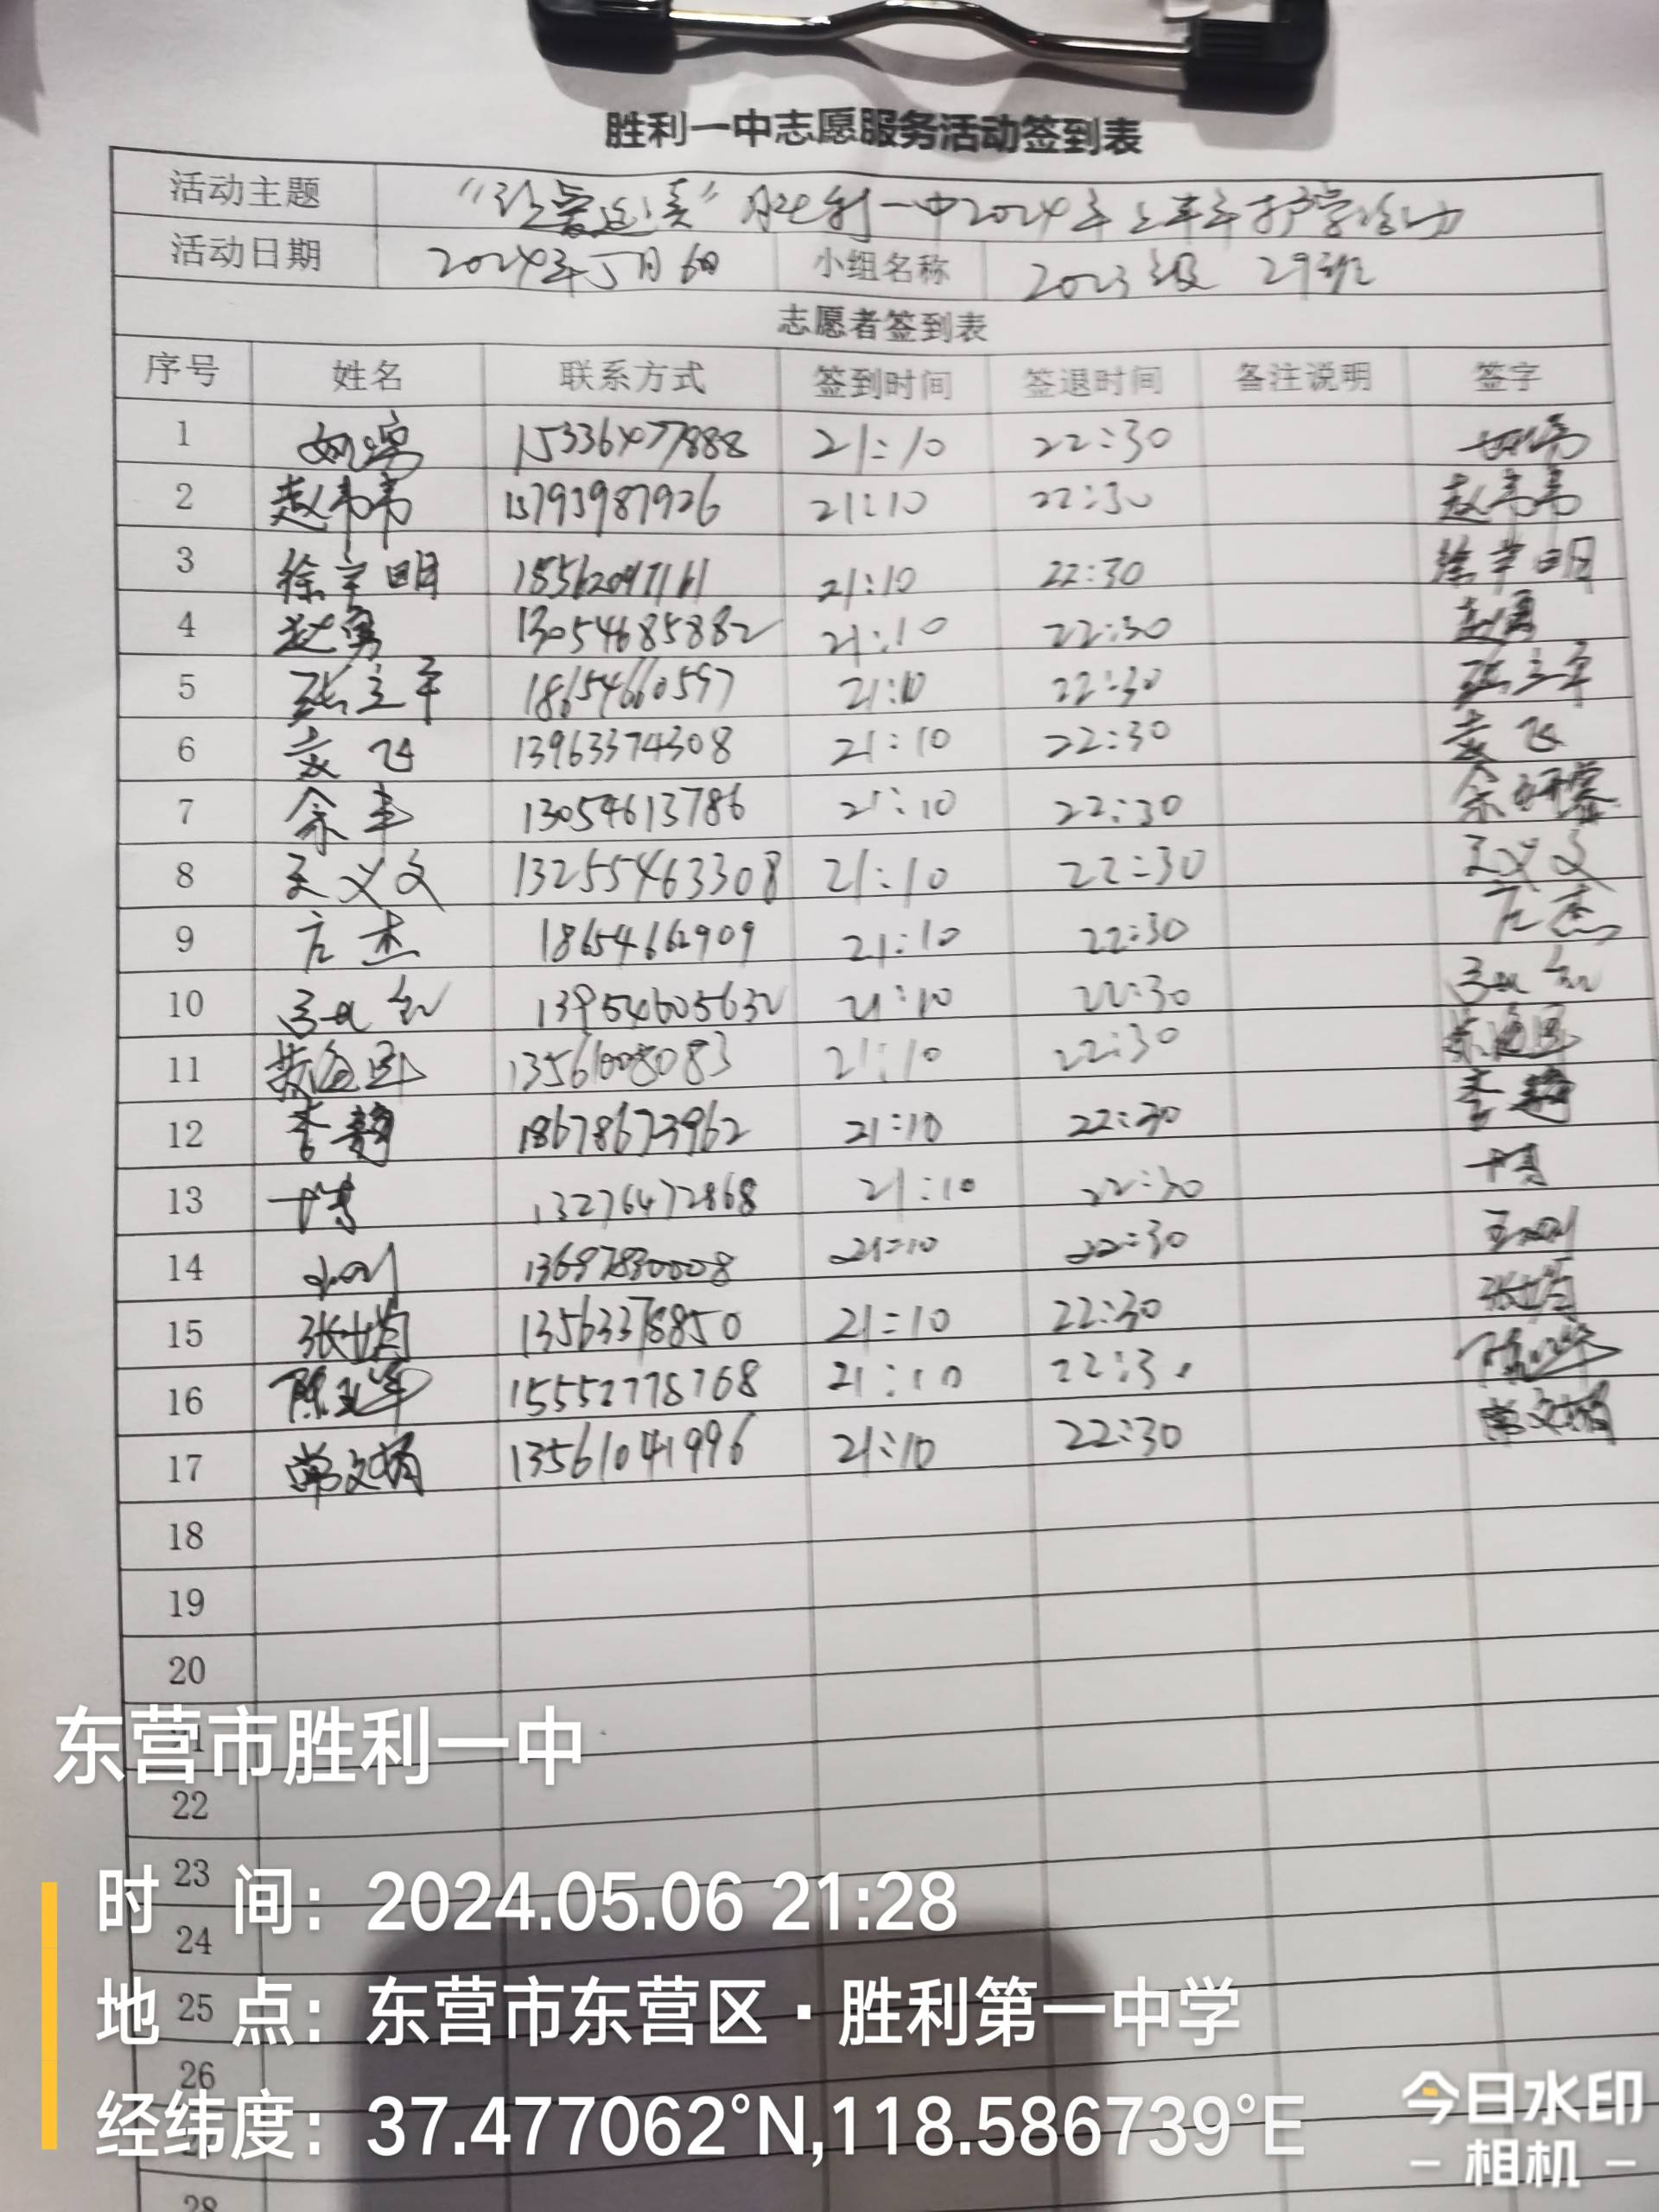 胜利一中志愿服务活动签到表
活动主题 “让爱延续”胜利一中2024年上半年护学活动
活动日期 2024年5月6日 小组名称 2023级 29班
志愿者签到表
序号 姓名 联系方式 签到时间 签退时间 备注说明 签字
1 15336477888 21:10 22:30
2 赵韦韦 13793987926 21:10 22:30 赵韦韦
3 徐宇明 18562047161 21:10 22:30 徐宇明
4 赵勇 13054685882 21:10 22:30 赵勇
5 张立军 18654660597 21:10 22:30 张立军
6 飞 13963374308 21:10 22:30 飞
7 余 13054613786 21:10 22:30 余
8 王义文 13255463308 21:10 22:30 王义文
9 杰 18654662909 21:10 22:30 杰
10 13954605632 21:10 22:30
11 13561008083 21:10 22:30
12 李 18678673962 21:10 22:30 李
13 13276472868 21:10 22:30
14 13697880008 21:10 22:30
15 张 13563378850 21:10 22:30 张
16 陈 15552778768 21:10 22:30 陈
17 常文娟 13561041996 21:10 22:30 常文娟
18
19
20
东营市胜利一中
22
23
时 间：2024.05.06 21:28
24
25
地 点：东营市东营区·胜利第一中学
26
经纬度：37.477062°N,118.586739°E
28
今日水印
相机